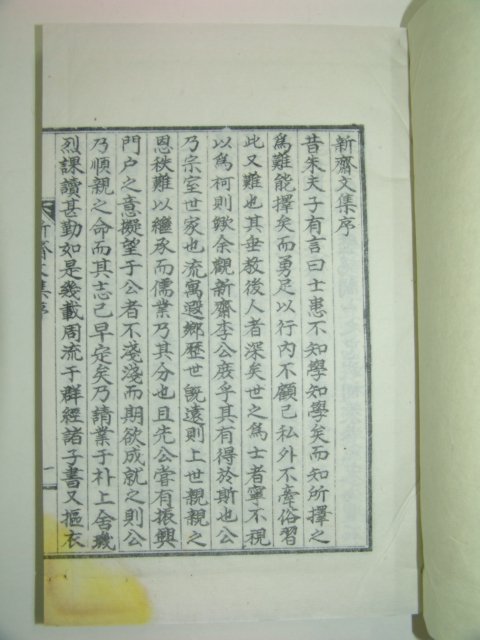 新齋文集序
昔朱夫子有言曰士患不知學知學矣而知所擇之
爲難能擇矣而勇足以行內不顧己私外不牽俗習
此又難也其垂敎後人者深矣世之爲士者寧不視
以爲柯則歟余觀新齋李公庶乎其有得於斯也公
乃宗室世家也流寓遐鄉歷世旣遠則上世親親之
恩秩難以繼承而儒業乃其分也且先公嘗有振興
門戶之意擬望于公者不淺淺而期欲成就之則公
乃順親之命而其志己早定矣乃請業于朴上舍璣
烈課讀甚勤如是幾載周流于群經諸子書又摳衣
新齋文集序
一